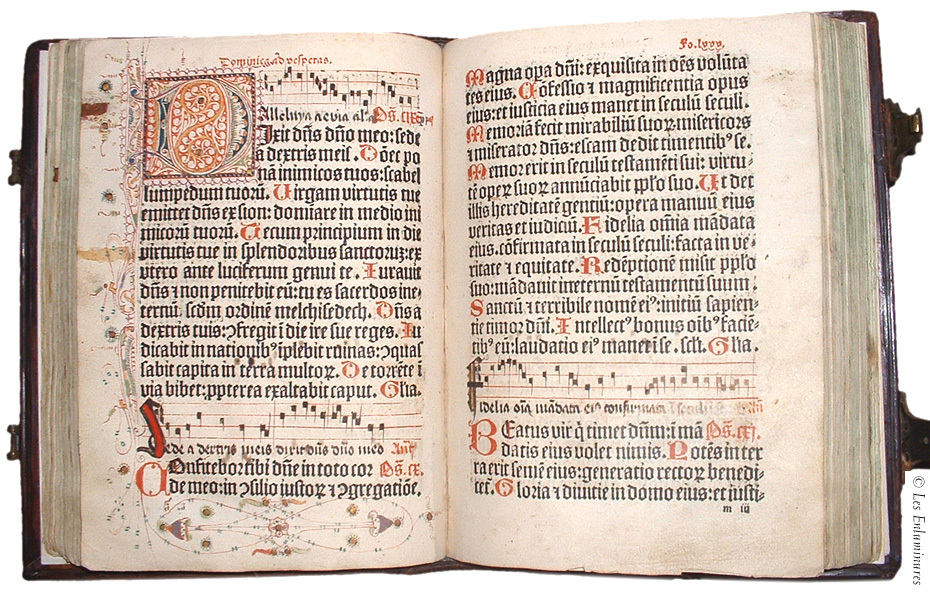 Dominica ad vesperas.
Alleluya aevia al'a Ps. cix
Dixit dn̄s dn̄o meo: sede
a dextris meis. Donec po
nā inimicos tuos: scabel
lum pedum tuorū. Uirgam virtutis tue
emittet dn̄s ex sion: domīare in medio ini
micorū tuorū. Tecum principium in die
virtutis tue in splendoribus sanctorꝝ: ex
vtero ante luciferum genui te. Iurauit
dn̄s ⁊ non penitebit eū: tu es sacerdos ine-
ternū. scd̄m ordinē melchisedech. Dn̄s a
dextris tuis: ꝯfregit ī die ire sue reges. Iu
dicabit in nationibꝰ īplebit ruinas: ꝯquas
sabit capita in terra multoꝝ. De torrēte ī
via bibet: ꝓpterea exaltabit caput. Gl̄ia.
Sede a dextris meis dixit dn̄s dn̄o meo Añ
Onfitebor tibi dn̄e in toto cor Ps. cx.
de meo: in ꝯsilio iustoꝝ ⁊ ꝯgregatiōe.
Fo. lxxx.
Magna oꝑa dn̄i: exquisita in oēs volūta
tes eius. Cōfessio ⁊ magnificentia opus
eius: et iusticia eius manet in seculū seculi.
Memoriā fecit mirabiliū suoꝝ misericors
⁊ miserator dn̄s: escam dedit timentibꝰ se.
Memor erit in seculū testamēti sui: virtu-
tē operꝝ suoꝝ annūciabit pp̄lo suo. Ut det
illis hereditatē gentiū: opera manuū eius
veritas et iudiciū. Fidelia om̄ia mādata
eius. cōfirmata in seculū seculi: facta in ve-
ritate ⁊ equitate. Redēptionē misit pp̄lo
suo: mādauit in eternū testamentū suum.
Sanctū ⁊ terribile nomē eiꝰ: iniciū sapien-
tie timor dn̄i. Intellectꝰ bonus oībꝰ faciē-
tibꝰ eū: laudatio eiꝰ manet ī se. scl̄i. Gl̄ia.
Fidelia oīa mādata eiꝰ confirmata ī seculū Añ
BEatus vir q̄ timet dn̄um: ī mā Ps. cxj.
datis eius volet nimis. Potēs in ter
ra erit semē eius: generatio rectoꝝ benedi
cet. Gloria ⁊ diuitie in domo eius: et iusti-
m iii
© Les Enluminures